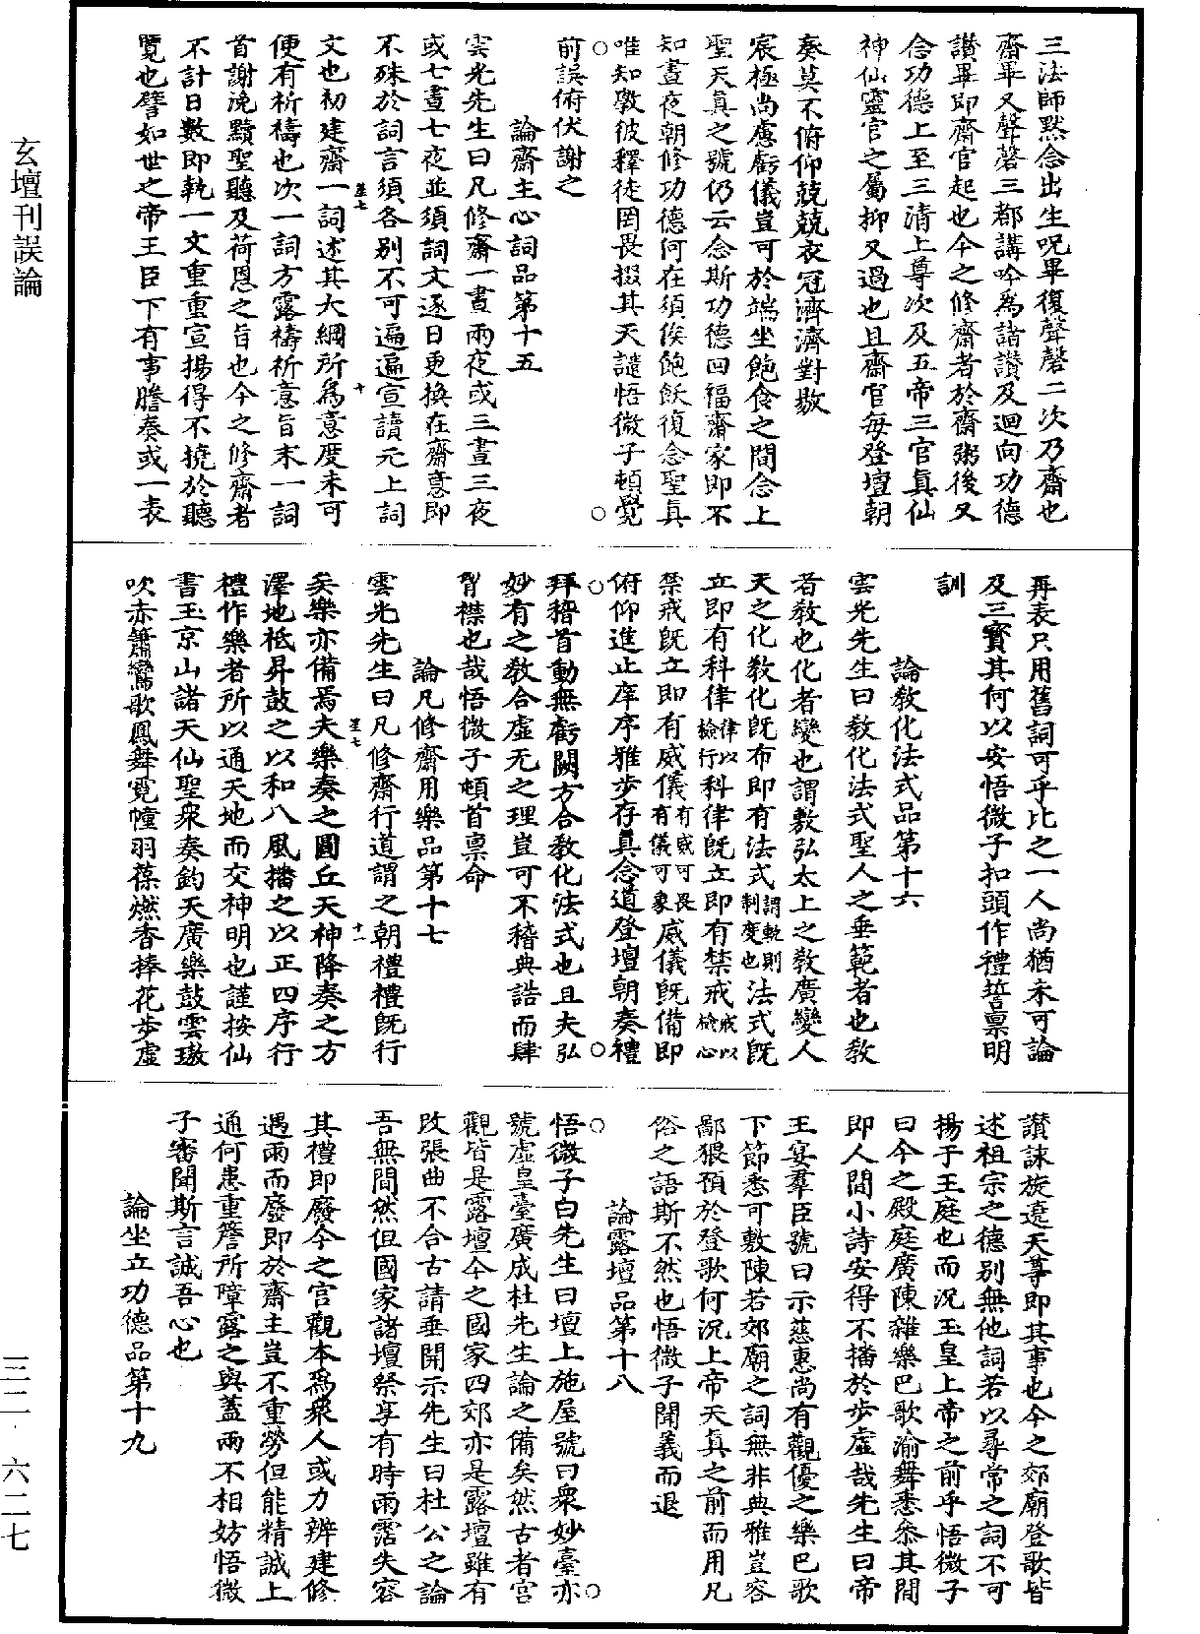 三法師默念出生呪畢復聲磬二次乃齋也
齋畢又聲磬三都講吟為諸讚及迴向功德
讚畢即齋官起也今之修齋者於齋粥後又
念功德上至三清上尊次及五帝三官真仙
神仙靈官之屬抑又過也且齋官每登壇朝
奏莫不俯仰兢兢衣冠濟濟對敭
宸極尚慮虧儀豈可於端坐飽食之間念上
聖天真之號仍云念斯功德回福齋家即不
知晝夜朝修功德何在須俟飽飫復念聖真
唯知斆彼釋徒罔畏掇其天譴悟微子頓覺
前誤俯伏謝之
論齋主心詞品第十五
雲光先生曰凡修齋一晝兩夜或三晝三夜
或七晝七夜並須詞文逐日更換在齋意即
不殊於詞言須各別不可遍遍宣讀元上詞
文也初建齋一詞述其大綱所為意度未可
便有祈禱也次一詞方露禱祈意旨末一詞
首謝浼黷聖聽及荷恩之旨也今之修齋者
不計日數即執一文重重宣揚得不撓於聽
覽也譬如世之帝王臣下有事謄奏或一表
再表只用舊詞可乎比之一人尚猶未可論
及三寶其何以安悟微子扣頭作禮誓稟明
訓
論教化法式品第十六
雲光先生曰教化法式聖人之垂範者也教
者教也化者變也謂敷弘太上之教廣變人
天之化教化既布即有法式謂軌則制度也法式既
立即有科律律以檢行科律既立即有禁戒戒以檢心
禁戒既立即有威儀有威可畏有儀可象威儀既備即
俯仰進止庠序雅步存真念道登壇朝奏禮
拜稽首動無虧闕方合教化法式也且夫弘
妙有之教合虛无之理豈可不稽典誥而肆
胷襟也哉悟微子頓首禀命
論凡修齋用樂品第十七
雲光先生曰凡修齋行道謂之朝禮禮既行
矣樂亦備焉夫樂奏之圓丘天神降奏之方
澤地祇昇鼓之以和八風播之以正四序行
禮作樂者所以通天地而交神明也謹按仙
書玉京山諸天仙聖衆奏鈞天廣樂鼓雲璈
吹赤簫鸞歌鳳舞霓幢羽葆燃香捧花步虛
讚誄旋遶天尊即其事也今之郊廟登歌皆
述祖宗之德別無他詞若以尋常之詞不可
揚于王庭也而況玉皇上帝之前乎悟微子
曰今之殿庭廣陳雜樂巴歌渝舞悉叅其間
即人間小詩安得不播於步虛哉先生曰帝
王宴羣臣號曰示慈惠尚有觀優之樂巴歌
下節悉可敷陳若郊廟之詞無非典雅豈容
鄙猥預於登歌何況上帝天真之前而用凡
俗之語斯不然也悟微子聞義而退
論露壇品第十八
悟微子白先生曰壇上施屋號曰衆妙臺亦
號虛皇臺廣成杜先生論之備矣然古者宮
觀皆是露壇今之國家四郊亦是露壇雖有
改張曲不合古請垂開示先生曰杜公之論
吾無間然但國家諸壇祭享有時雨霑失容
其禮即廢今之宮觀本為衆人或力辨建修
遇雨而廢即於齋主豈不重勞但能精誠上
通何患重簷所障露之與蓋兩不相妨悟微
子審聞斯言誠吾心也
論坐立功德品第十九
玄壇刊誤論
三二·六二七